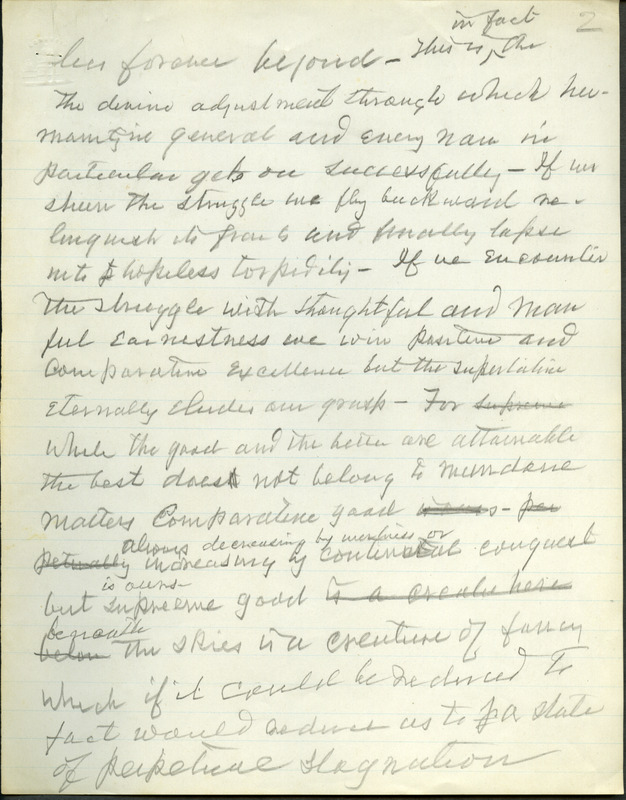 in fact 2
lies forever beyond - This is the
The divine adjustment through which hu-
manity in general and every man in
particular gets on successfully - If we
shun the struggle we fly backward re-
linquish its fruits and finally lapse
into hopeless torpidity - If we encounter
the struggle with thoughtful and man
ful earnestness we win positive and
comparative excellence but the superlative
eternally eludes our grasp - For supreme
While the good and the better are attainable
the best does not belong to mundane
matters Comparative good - per
always decreasing by weakness or
petually increasing by continual conquest
is ours -
but supreme good is a creature here
beneath
below the skies is a creature of fancy
which if it could be reduced to
fact would reduce us to a state
of perpetual stagnation